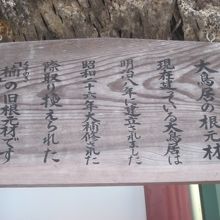 大鳥居の根元材
現在建っている大鳥居は
明治八年に建立されました
昭和二十六年大補修された
際取り換えられた
楠の旧根元材です